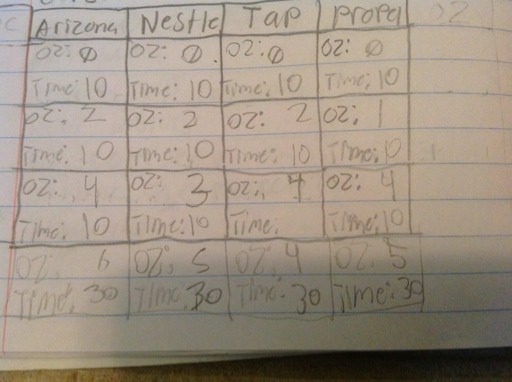 Arizona Nestle Tap Propel OZ
OZ: 0 OZ: 0. OZ: 0 OZ: 0
Time: 10 Time: 10 Time: 10 Time: 10
OZ: 2 OZ: 2 OZ: 2 OZ: 1
Time: 10 Time: 10 Time: 10 Time: 10
OZ: 4 OZ: 3 OZ: 4 OZ: 4
Time: 10 Time: 10 Time: Time: 10
OZ: 6 OZ: 5 OZ: 4 OZ: 5
Time: 30 Time: 30 Time: 30 Time: 30